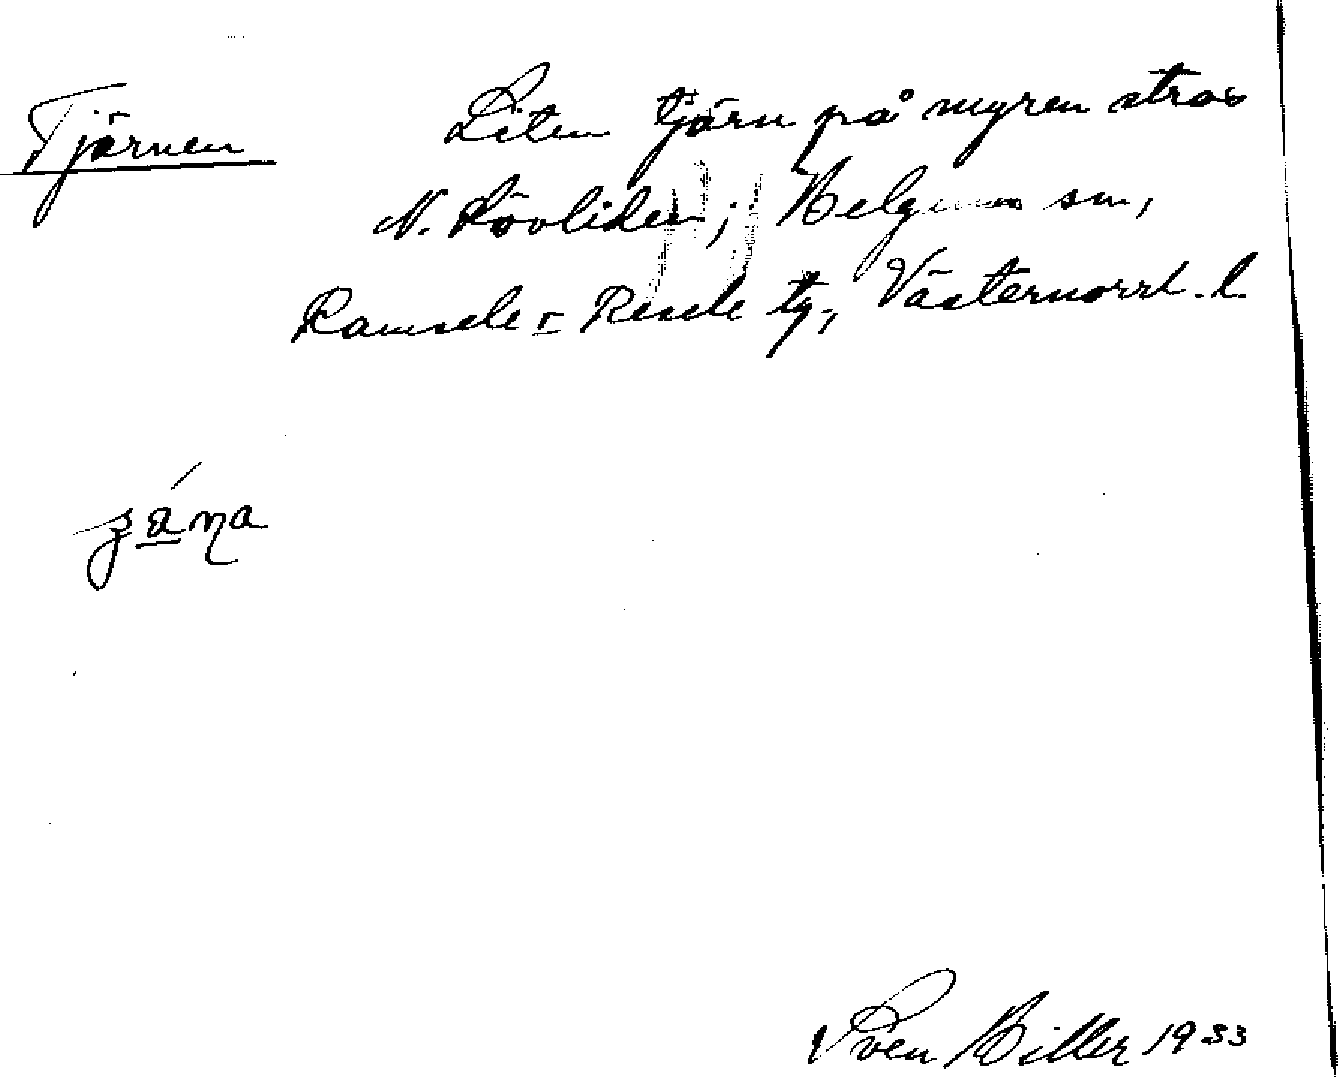 Tjärnen
Liten tjärn på myren strax
N. Lövliden; Helgums sn,
Ramsele o. Resele tg, Västernorrl. l.
Sven Hiller 1933